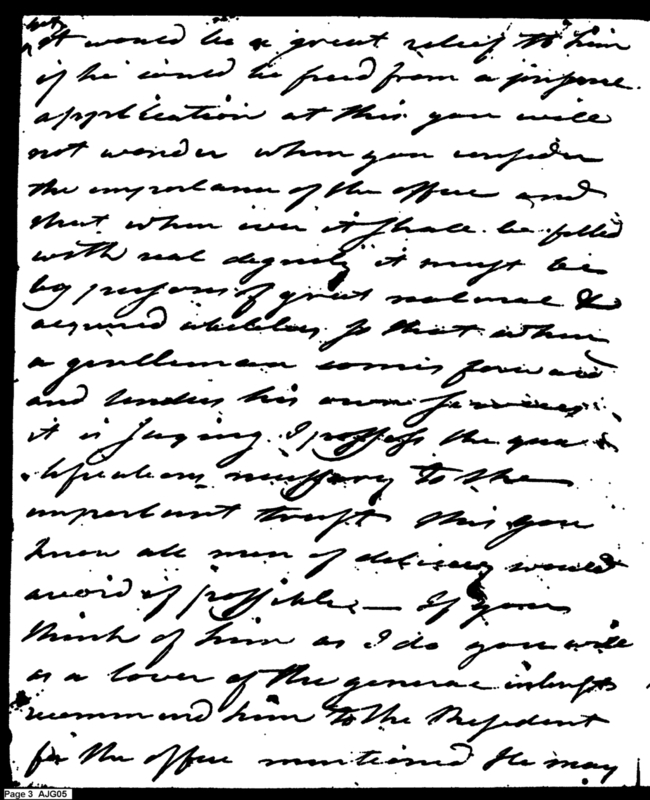 but
it would be a great relief to him
if he could be freed from a personal
application at this you will
not wonder when you consider
the importance of the office and
that when ever it shall be filled
with real dignity it must be
by persons of great natural &
acquired abilities so that when
a gentleman comes forward
and tenders his own services
it is saying I possess the qua
lifications necessary to the
important trust this you
know all men of delicacy would
avoid if possible — If you
think of him as I do you will
as a lover of the general interests
recommend him to the President
for the office mentioned He may
Page 3 AJG05